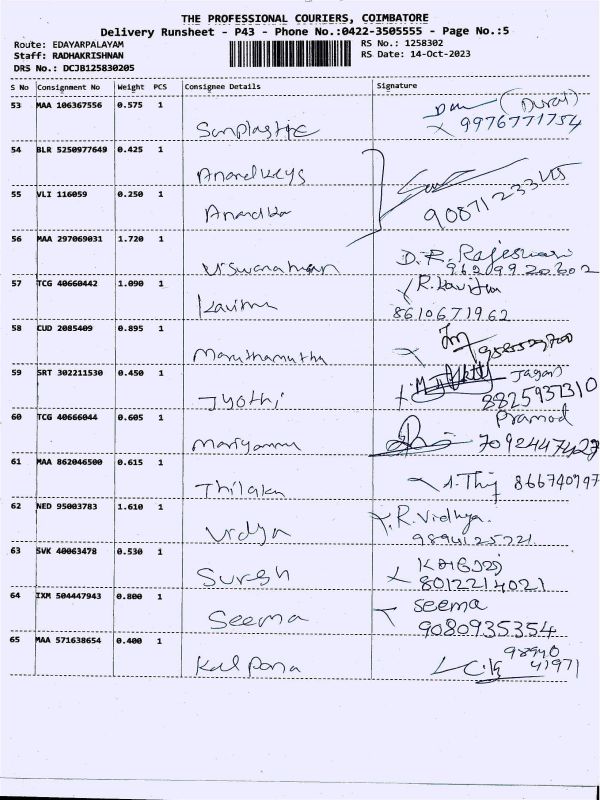 THE PROFESSIONAL COURIERS, COIMBATORE
Delivery Runsheet - P43 - Phone No.:0422-3505555 - Page No.:5
Route: EDAYARPALAYAM RS No.: 1258302
Staff: RADHAKRISHNAN RS Date: 14-Oct-2023
DRS No.: DCJB125830205
S No Consignment No Weight PCS Consignee Details Signature
53 MAA 106367556 0.575 1
(Durai)
Sanplastic 9976771754
54 BLR 5250977649 0.425 1
Anandkeys
55 VLI 116059 0.250 1
90871233
56 MAA 297069031 1.720 1
Viswanathan D.R. Rajeswari
9629920202
57 TCG 40660442 1.090 1
R. Kavitha
Kavitha 8610671962
58 CUD 2085409 0.895 1
Maruthamuthu
59 SRT 302211530 0.450 1 Jagan
Jyothi 8825937310
60 TCG 40666044 0.605 1 Pramod
Mariyammu 7092447427
61 MAA 862046500 0.615 1
Thilaka 866740797
62 NED 95003783 1.610 1
R. Vidhya.
Vidya 9894125721
63 SVK 40063478 0.530 1
Suresh 8012214021
64 IXM 504447943 0.800 1 seema
Seema 9080935354
65 MAA 571638654 0.400 1
98940
Kalpana 41971